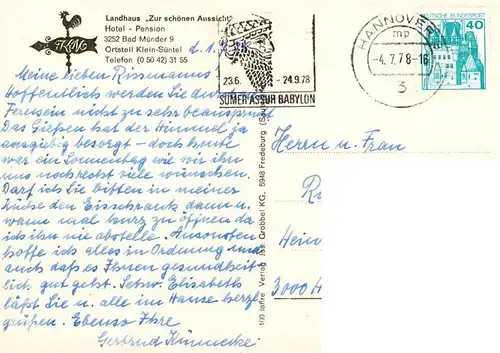 Landhaus „Zur schönen Aussicht"
Hotel - Pension
3252 Bad Münder 9
Ortsteil Klein-Süntel
Telefon (0 50 42) 31 55
KMG
d. 1.
Meine lieben Rissmanns
Hoffentlich werden Sie durch
Fernsein nicht zu sehr beansprucht
Das Gießen hat der Himmel ja
ausgiebig besorgt - doch heute
war ein Sonnentag wie wir ihn
uns noch recht viele wünschen.
Darf ich Sie bitten in meiner
Küche den Eisschrank dann u.
wann mal kurz zu öffnen da
ich ihn nie abstelle. Ansonsten
hoffe ich alles in Ordnung und
auch daß es Ihnen gesundheit
lich gut geht. Schw. Elisabeth
läßt Sie u. alle im Hause herzl.
grüßen. Ebenso Ihre
Gertrud
23.6. - 24.9.78
SUMER ASSUR BABYLON
HANNOVER
mp
-4.7.78-16
3
DEUTSCHE BUNDESPOST
40
100 Jahre Verlag Jos. Grobbel KG, 5948 Fredeburg
Herrn u. Frau
R
Hein
3000 H